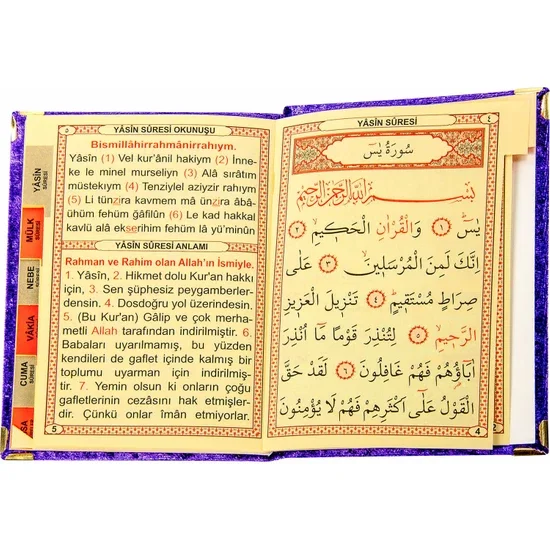 ٥ YÂSİN SÛRESİ OKUNUŞU
Bismillâhirrahmânirrahıym.
Yâsîn (1) Vel kur'ânil hakiym (2) İnne-
ke le minel murseliyn (3) Alâ sırâtım
müstekıym (4) Tenziylel aziyzir rahıym
(5) Li tünzira kavmem mâ ünzira âbâ-
ühüm fehüm gâfilûn (6) Le kad hakkal
kavlü alâ ekserihim fehüm lâ yü'minûn
YÂSİN SÛRESİ ANLAMI
Rahman ve Rahim olan Allah'ın İsmiyle.
1. Yâsîn, 2. Hikmet dolu Kur'an hakkı
için, 3. Sen şüphesiz peygamberler-
densin. 4. Dosdoğru yol üzerindesin.
5. (Bu Kur'an) Gâlip ve çok merha-
metli Allah tarafından indirilmiştir. 6.
Babaları uyarılmamış, bu yüzden
kendileri de gaflet içinde kalmış bir
toplumu uyarman için indirilmiş-
tir. 7. Yemin olsun ki onların çoğu
gafletlerinin cezasını hak etmişler-
dir. Çünkü onlar îmân etmiyorlar.
5
YÂSİN
SÛRESİ
MÜLK
SÛRESİ
NEBE
SÛRESİ
VÂKIA
CUMA
SÛRESİ
YÂSİN SÛRESİ ٤
سُورَةُ يٰسٓ
بِسْمِ اللّٰهِ الرَّحْمٰنِ الرَّحِيمِ
يٰسٓ ﴿١﴾ وَالْقُرْاٰنِ الْحَكِيمِ ﴿٢﴾
اِنَّكَ لَمِنَ الْمُرْسَلِينَ ﴿٣﴾ عَلٰى
صِرَاطٍ مُسْتَقِيمٍ ﴿٤﴾ تَنْزِيلَ الْعَزِيزِ
الرَّحِيمِ ﴿٥﴾ لِتُنْذِرَ قَوْمًا مَٓا اُنْذِرَ
اٰبَٓاؤُهُمْ فَهُمْ غَافِلُونَ ﴿٦﴾ لَقَدْ حَقَّ
الْقَوْلُ عَلٰٓى اَكْثَرِهِمْ فَهُمْ لَا يُؤْمِنُونَ
4
2